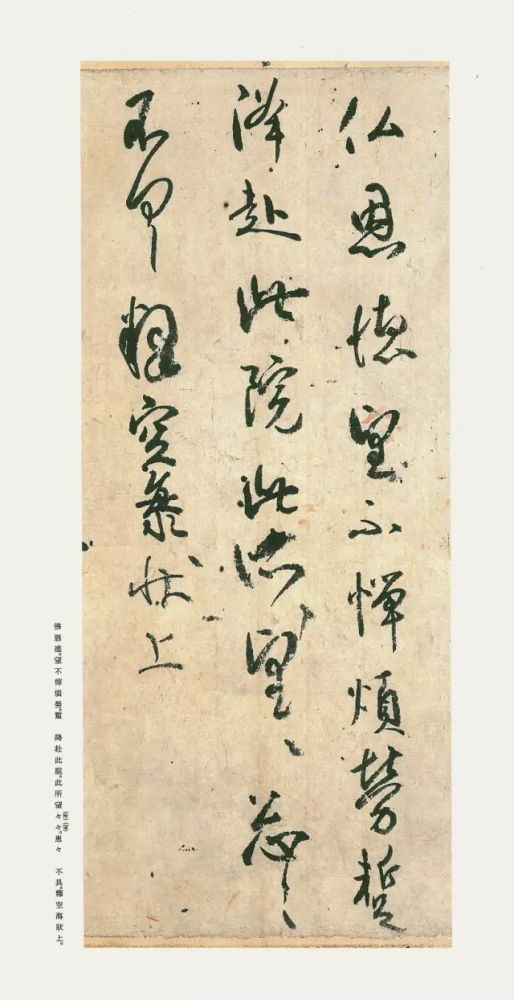 仏恩徳望不憚煩勞蹔
降赴此院此所望〻忩〻
不具釋空海状上
佛恩德。望不憚煩勞。蹔 降赴此院。此所望々々。悤々 不具。釋空海狀上。